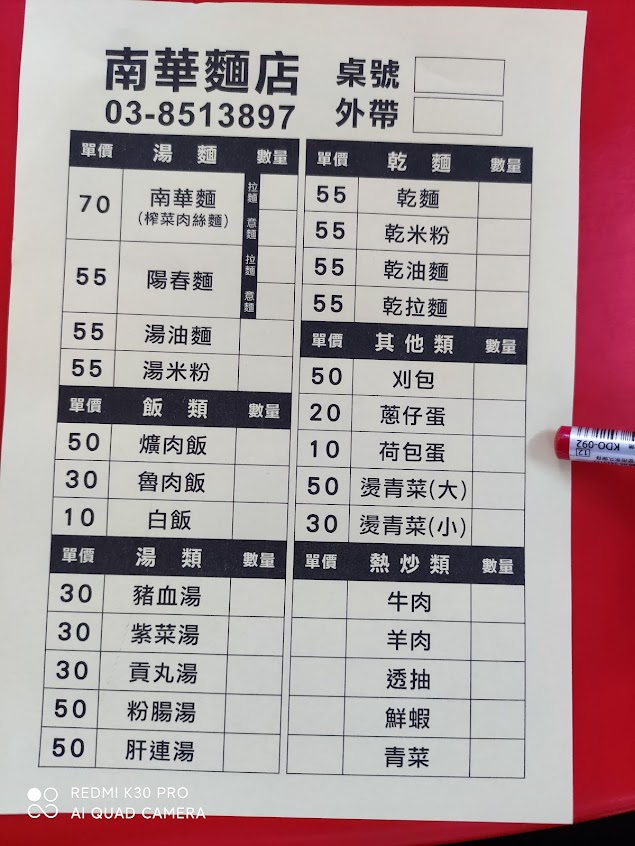 南華麵店 桌號
03-8513897 外帶
單價 湯麵 數量
70 南華麵 拉麵
(榨菜肉絲麵) 意麵
55 陽春麵 拉麵
意麵
55 湯油麵
55 湯米粉
單價 飯類 數量
50 爌肉飯
30 魯肉飯
10 白飯
單價 湯類 數量
30 豬血湯
30 紫菜湯
30 貢丸湯
50 粉腸湯
50 肝連湯
單價 乾麵 數量
55 乾麵
55 乾米粉
55 乾油麵
55 乾拉麵
單價 其他類 數量
50 刈包
20 蔥仔蛋
10 荷包蛋
50 燙青菜(大)
30 燙青菜(小)
單價 熱炒類 數量
牛肉
羊肉
透抽
鮮蝦
青菜
KDO-092
REDMI K30 PRO
AI QUAD CAMERA